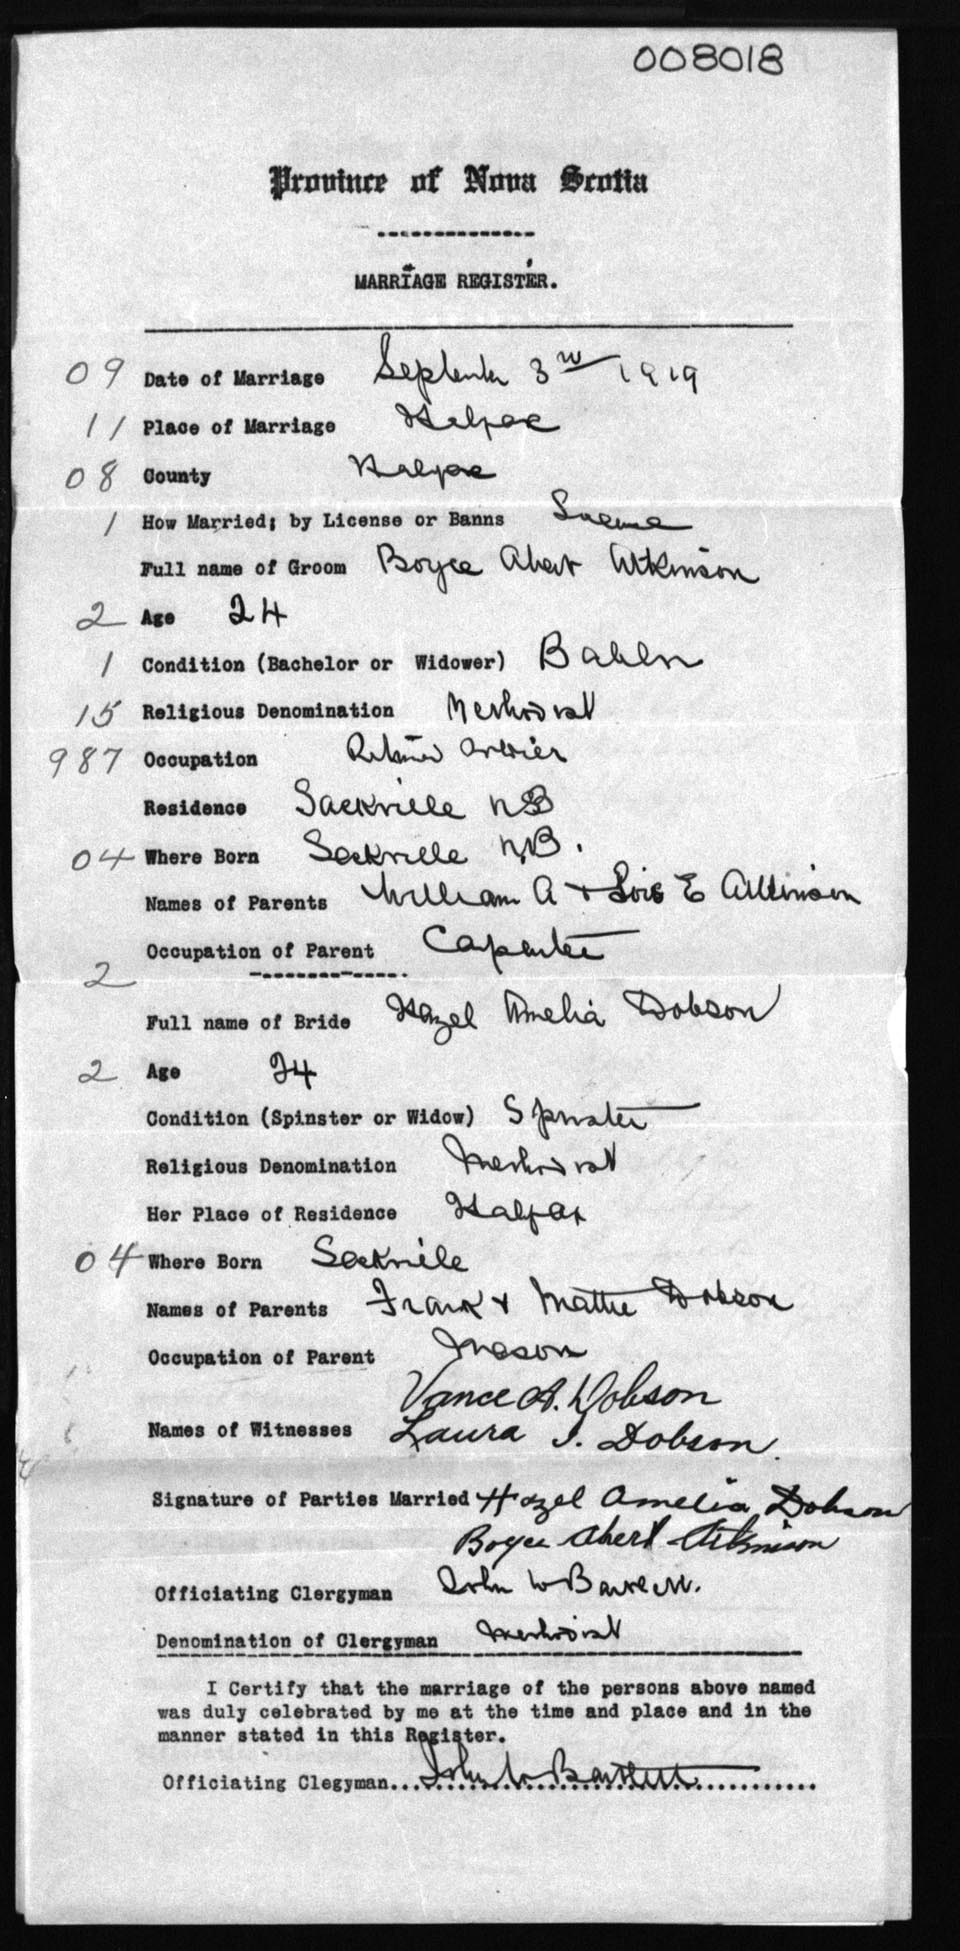 008018
Province of Nova Scotia
MARRIAGE REGISTER.
09 Date of Marriage September 3rd 1919
11 Place of Marriage Halifax
08 County Halifax
1 How Married; by License or Banns License
Full name of Groom Boyce Albert Atkinson
2 Age 24
1 Condition (Bachelor or Widower) Bachelor
15 Religious Denomination Methodist
987 Occupation Returned Soldier
Residence Sackville NB
04 Where Born Sackville N.B.
Names of Parents William A + Lois E Atkinson
Occupation of Parent Carpenter
2
Full name of Bride Hazel Amelia Dobson
2 Age 24
Condition (Spinster or Widow) Spinster
Religious Denomination Methodist
Her Place of Residence Halifax
04 Where Born Sackville
Names of Parents Frank + Mattie Dobson
Occupation of Parent Mason
Vance A. Dobson
Names of Witnesses Laura I. Dobson
Signature of Parties Married Hazel Amelia Dobson
Boyce Albert Atkinson
Officiating Clergyman John W Bartlett.
Denomination of Clergyman Methodist
I Certify that the marriage of the persons above named
was duly celebrated by me at the time and place and in the
manner stated in this Register.
Officiating Clegyman... John W Bartlett